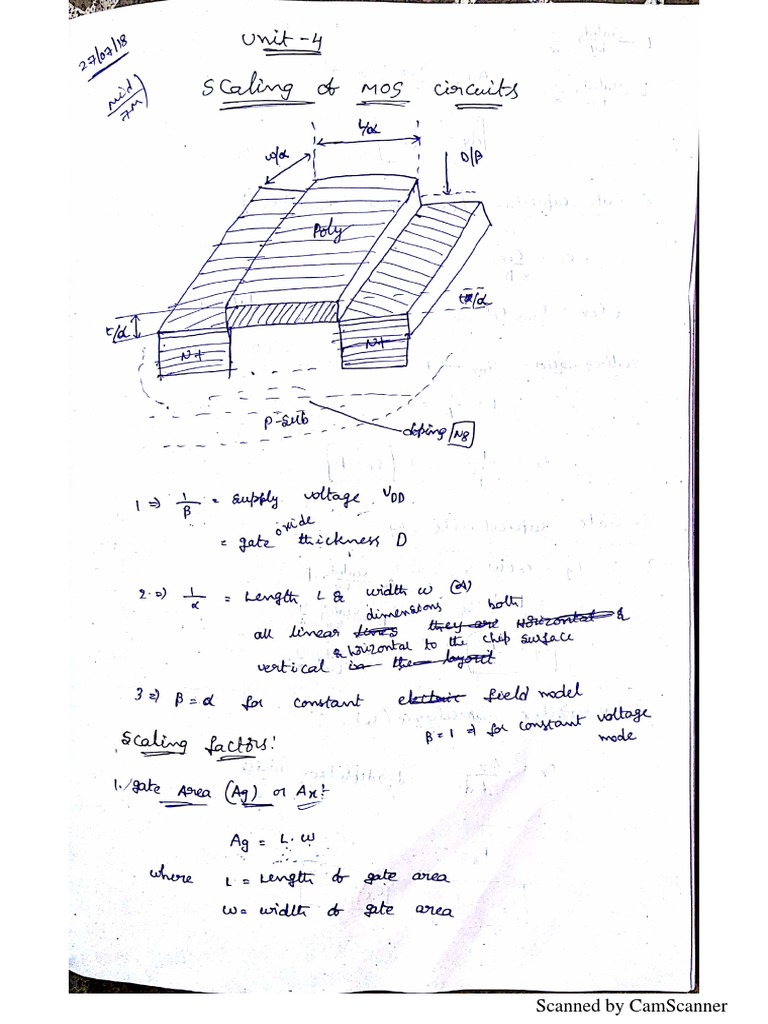 27/07/18
Unit-4
mid)
7M)
Scaling of MOS circuits
L/α
w/α
D/β
Poly
t/α
N+
N+
P-sub
doping NB
1 ⇒ 1/β = supply voltage VDD
= gate oxide thickness D
2 ⇒ 1/α = Length L & width w (or)
all linear dimensions both
vertical & horizontal to the chip surface
3 ⇒ β = α for constant field model
β = 1 ⇒ for constant voltage
mode
Scaling factors:
1. gate Area (Ag) or Ax:
Ag = L. w
where L = Length of gate area
w = width of gate area
Scanned by CamScanner